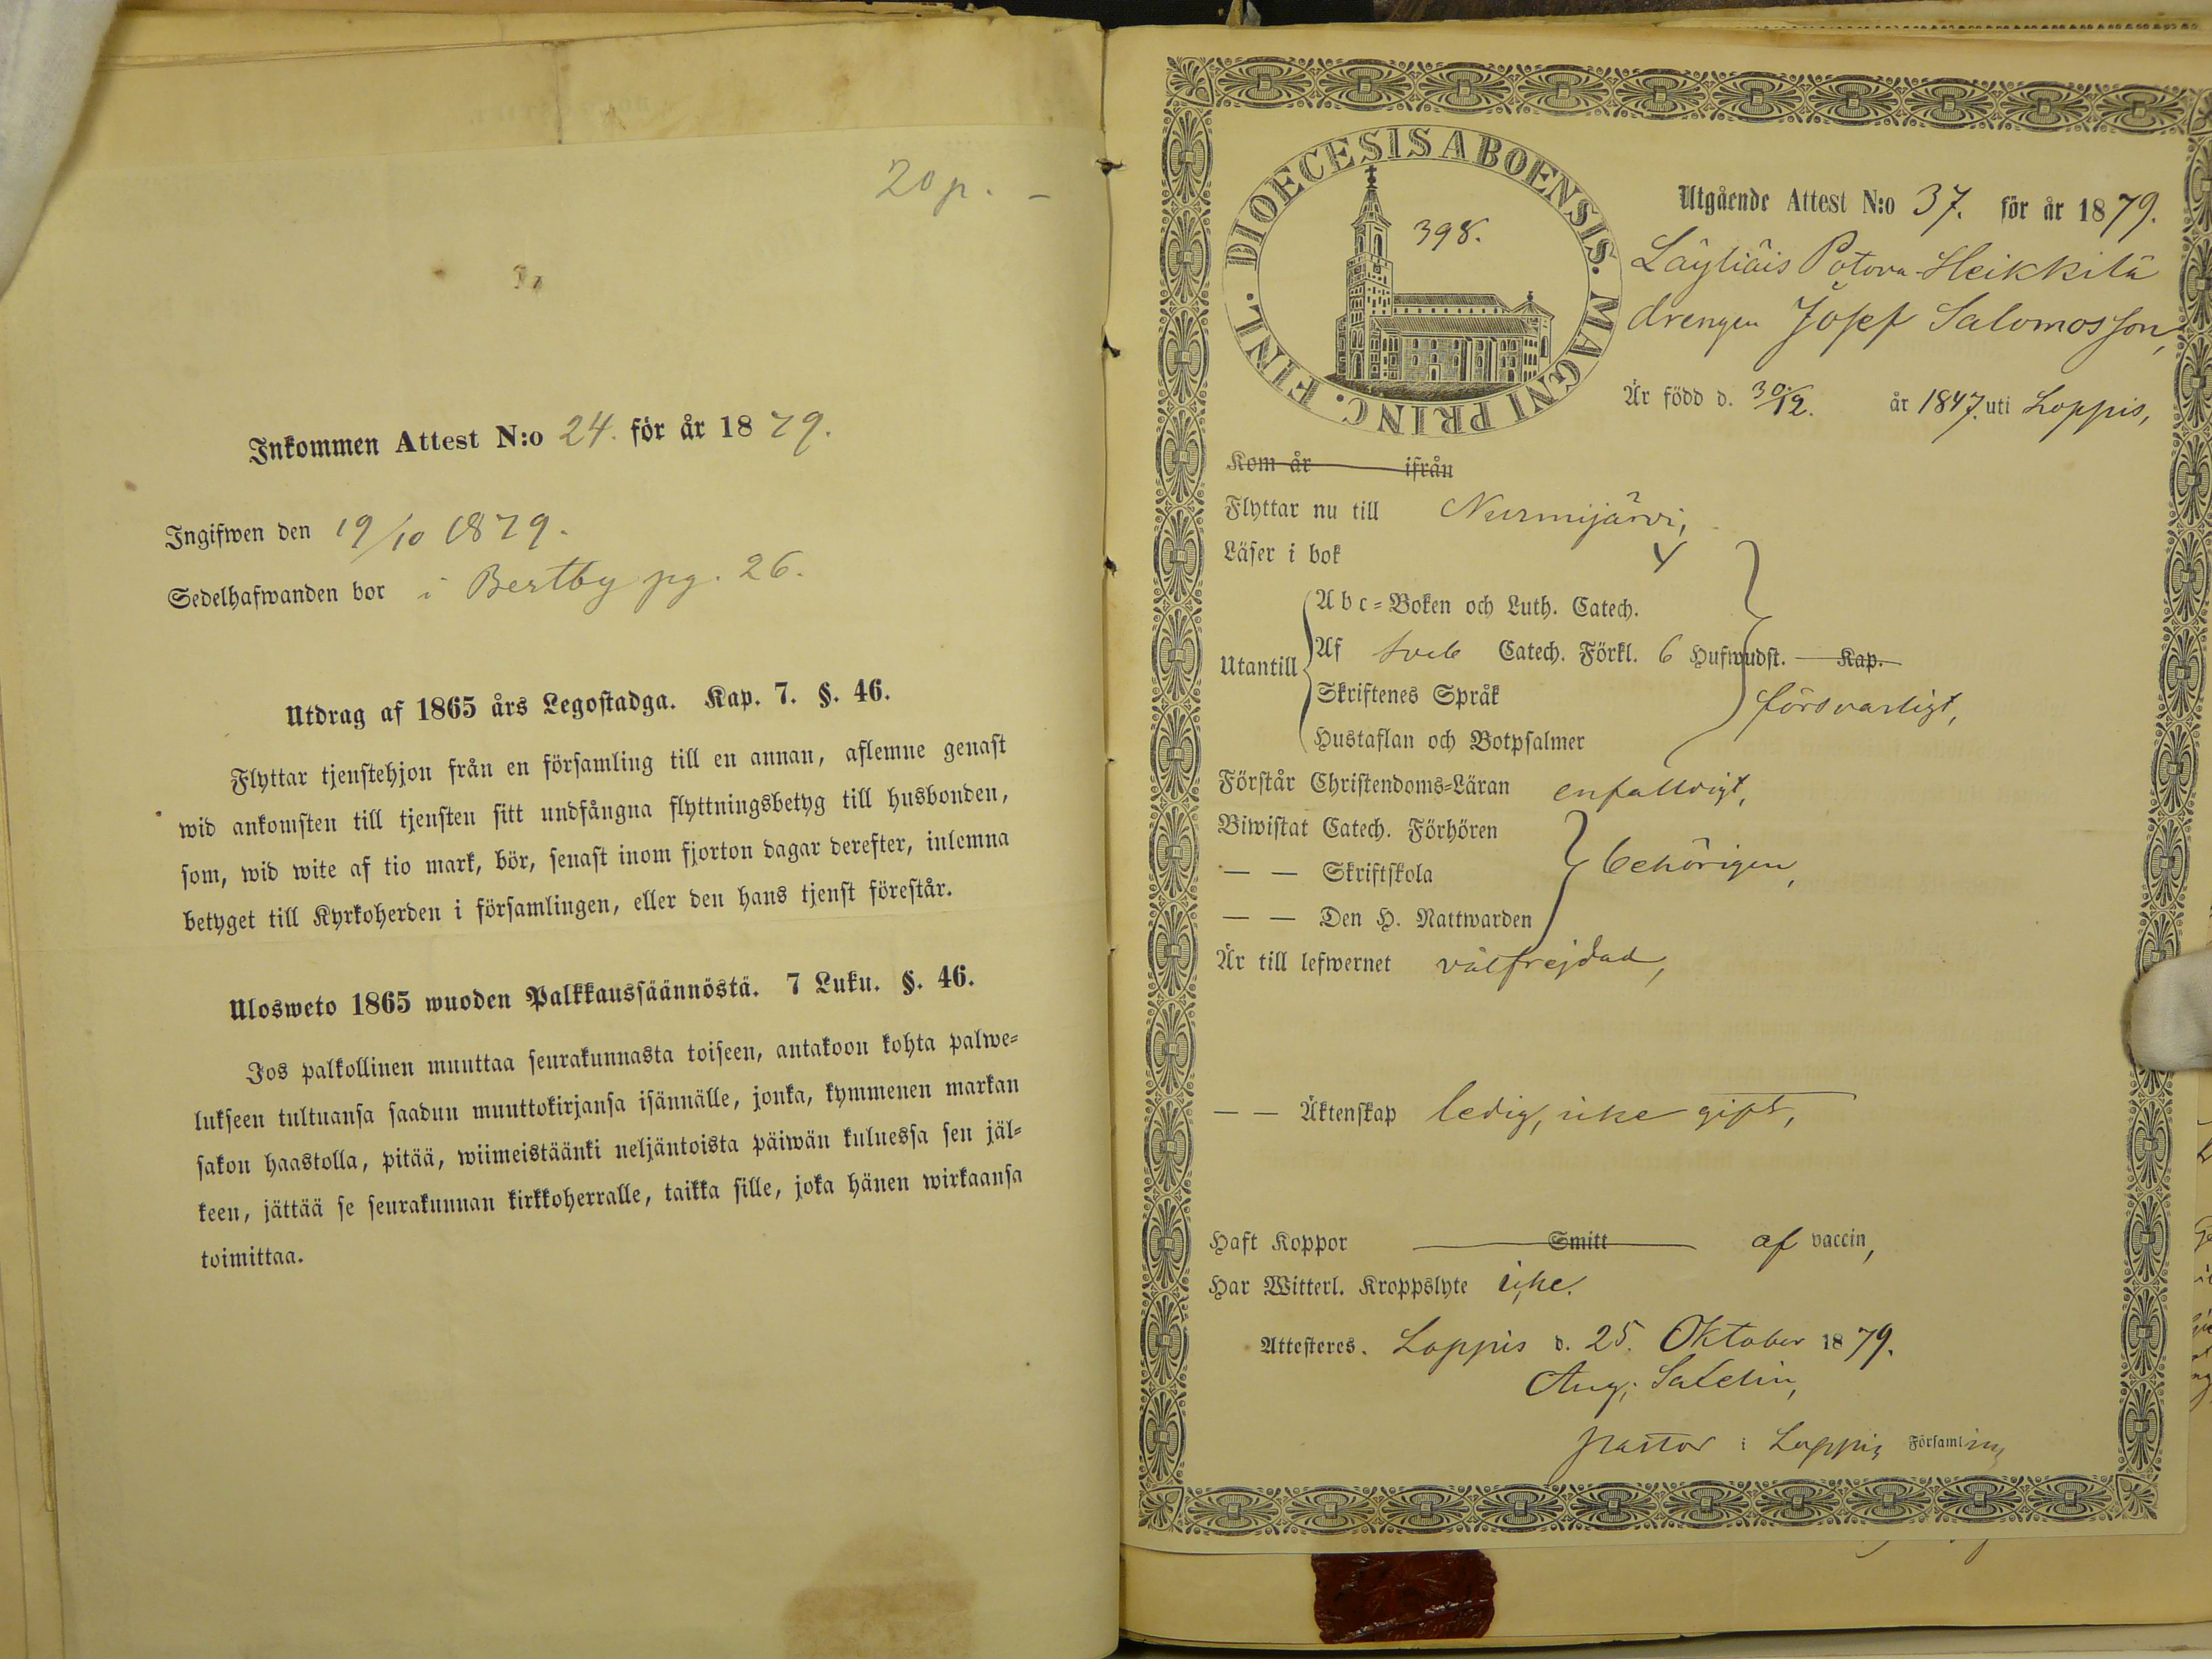 20 p. -
Inkommen Attest N:o 24. för år 1879.
Ingifwen den 19/10 1879.
Sedelhafwanden bor i Bertby pg. 26.
Utdrag af 1865 års Legostadga. Kap. 7. §. 46.
Flyttar tjenstehjon från en församling till en annan, aflemne genast
wid ankomsten till tjensten sitt undfångna flyttningsbetyg till husbonden,
som, wid wite af tio mark, bör, senast inom fjorton dagar derefter, inlemna
betyget till Kyrkoherden i församlingen, eller den hans tjenst förestår.
Ulosweto 1865 wuoden Palkkaussäännöstä. 7 Luku. §. 46.
Jos palkollinen muuttaa seurakunnasta toiseen, antakoon kohta palwe=
lukseen tultuansa saadun muuttokirjansa isännälle, jonka, kymmenen markan
sakon haastolla, pitää, wiimeistäänki neljäntoista päiwän kuluessa sen jäl=
keen, jättää se seurakunnan kirkkoherralle, taikka sille, joka hänen wirkaansa
toimittaa.
DIOECESIS ABOENSIS. MAGNI PRINC. FINL.
398.
Utgående Attest N:o 37. för år 1879.
Läyliäis Potova-Heikkilä
drengen Josef Salomosson,
Är född d. 30/12. år 1847. uti Loppis,
Kom år ifrån
Flyttar nu till Nurmijärvi,
Läser i bok
Utantill
Abc=Boken och Luth. Catech.
Af Sveb Catech. Förkl. 6 Hufwudst. Kap.
Skriftenes Språk försvarligt,
Hustaflan och Botpsalmer
Förstår Christendoms=Läran enfalldigt,
Biwistat Catech. Förhören
— — Skriftskola behörigen,
— — Den H. Nattwarden
Är till lefwernet välfrejdad,
— — Äktenskap ledig, icke gift,
Haft Koppor Smitt af vaccin,
Har Witterl. Kroppslyte icke.
Attesteres. Loppis d. 25. Oktober 1879.
Aug.
pastor i Loppis Församling